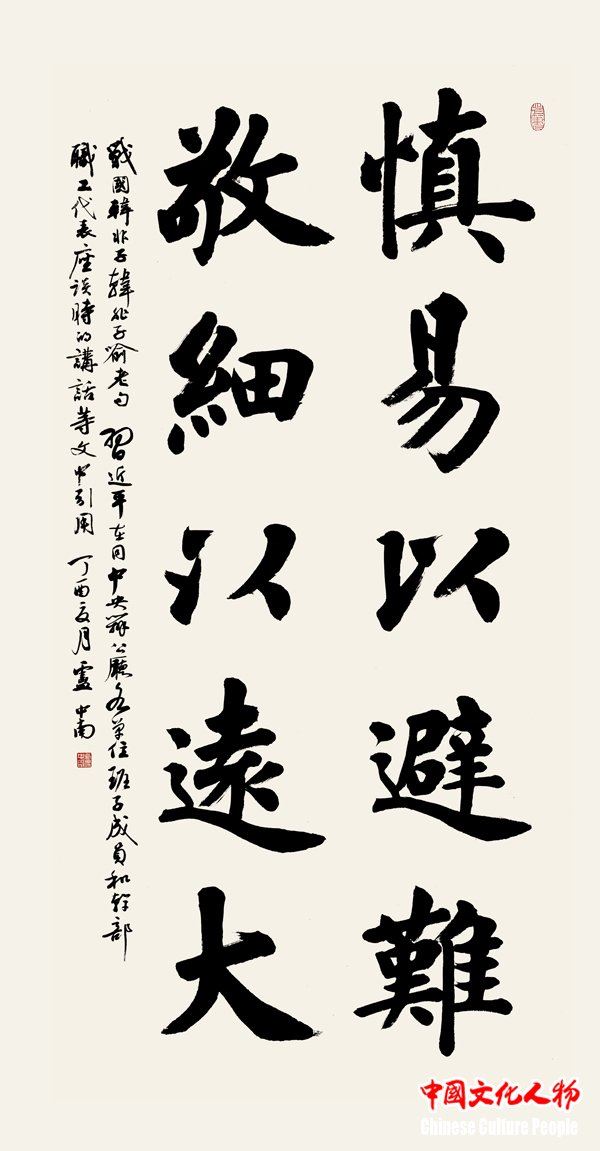 慎易以避難
敬細以遠大
戰國韓非子韓非子喻老句 習近平在同中央辦公廳各單位班子成員和幹部
職工代表座談時的講話等文中引用 丁酉夏月盧中南
中國文化人物
Chinese Culture People